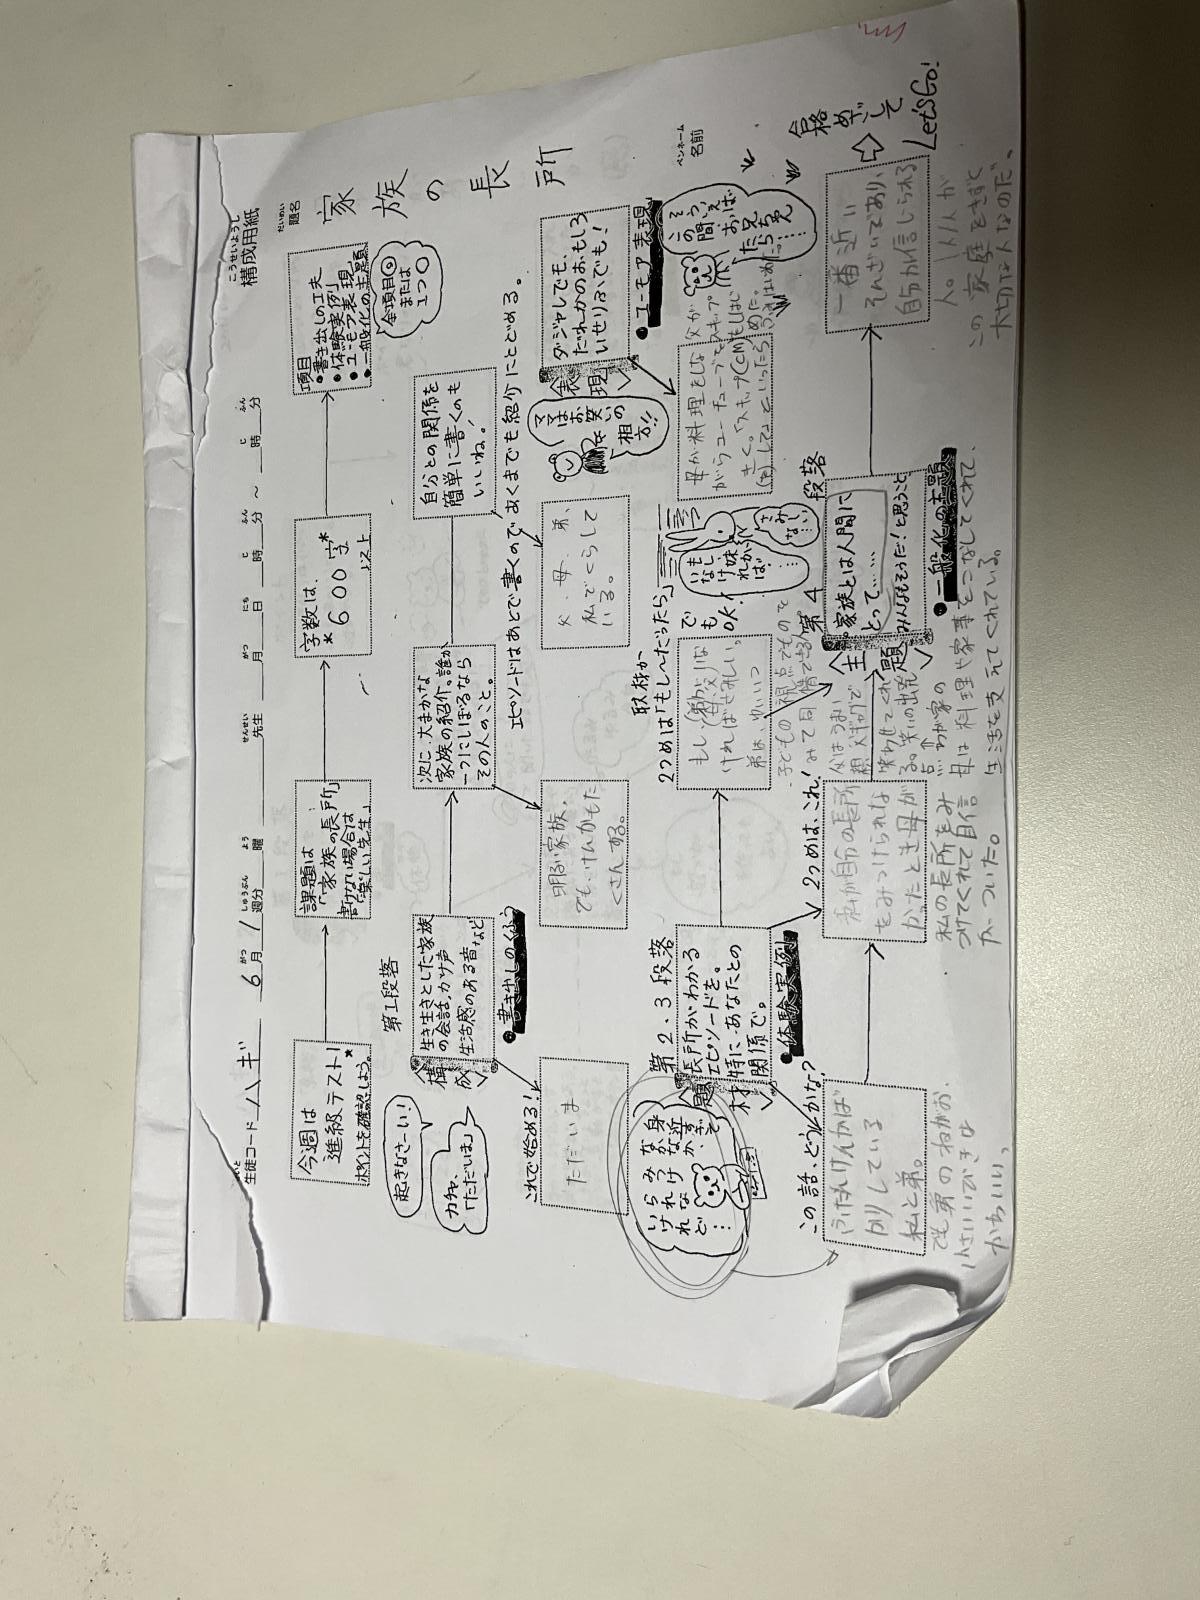 構成用紙
こうせいようし
生徒コード ハギ 6月1週分 曜 先生 月 日 時 分 ~ 時 分
題名
だいめい
家族の長所
ペンネーム
名前
今週は
進級テスト!
ポイントを確認しよう。*
課題は
「家族の長所」
書けない場合は
「楽しい先生」
字数は、
*600字*
以上
項目
●書き出しの工夫
●体験実例
●ユーモア表現
●一般化の主題
全項目◎
または
1つ○
第1段落
起きなさーい!
ガチャ、
「ただいま」
〈構成〉
生き生きとした家族
の会話、かけ声
生活感のある音など
●書き出しのくふう
次に、大まかな
家族の紹介。誰か
一つにしぼるなら
その人のこと。
自分との関係を
簡単に書くのも
いいね!
エピソードはあとで書くのであくまでも紹介にとどめる。
これで始める!
ただいま
明るい家族。
でも、けんかもた
くさんする。
父、母、弟、
私でくらして
いる。
〈表現〉
ダジャレでも、
だれかのおもしろ
いせりふでも!
●ユーモア表現
ママは
お笑いの
相方!!
第2、3段落
〈題材〉
長所がわかる
エピソードを。
特に、あなたとの
関係で。
●体験実例
身近すぎて
なかなか
みつけ
られないけれど…
2つめは「もし~だったら」
でも
OK!
もし(弟が)(父)な
ければさみしい。
弟は、ゆいいつ
いもうと
さみしい…
母が料理をしな
がらユーチューブを
きく。「スキップ(CM)
してよといったら
父が
スキップ
もしはじ
めた。
この間、
おばちゃん
…
この話、どうかな?
ふだんけんかば
かりしている
私と弟。
でも弟のねがお、
小さいいびきは
かわいい。
2つめは、これ!
私が自分の長所
をみつけられな
かったとき母が
私の長所をみ
つけてくれて自信
がついた。
母は料理や家事をこなしてくれて、
生活を支えてくれている。
第4段落
〈主題〉
家族とは人間に
とって……
みんなもそうだ!と思うこと
●一般化の主題
一番近い
そんざいであり、
自分が信じられる
人。一人一人が
この家庭をきずく
大切な人なのだ。
合格
めざして
Let's Go!